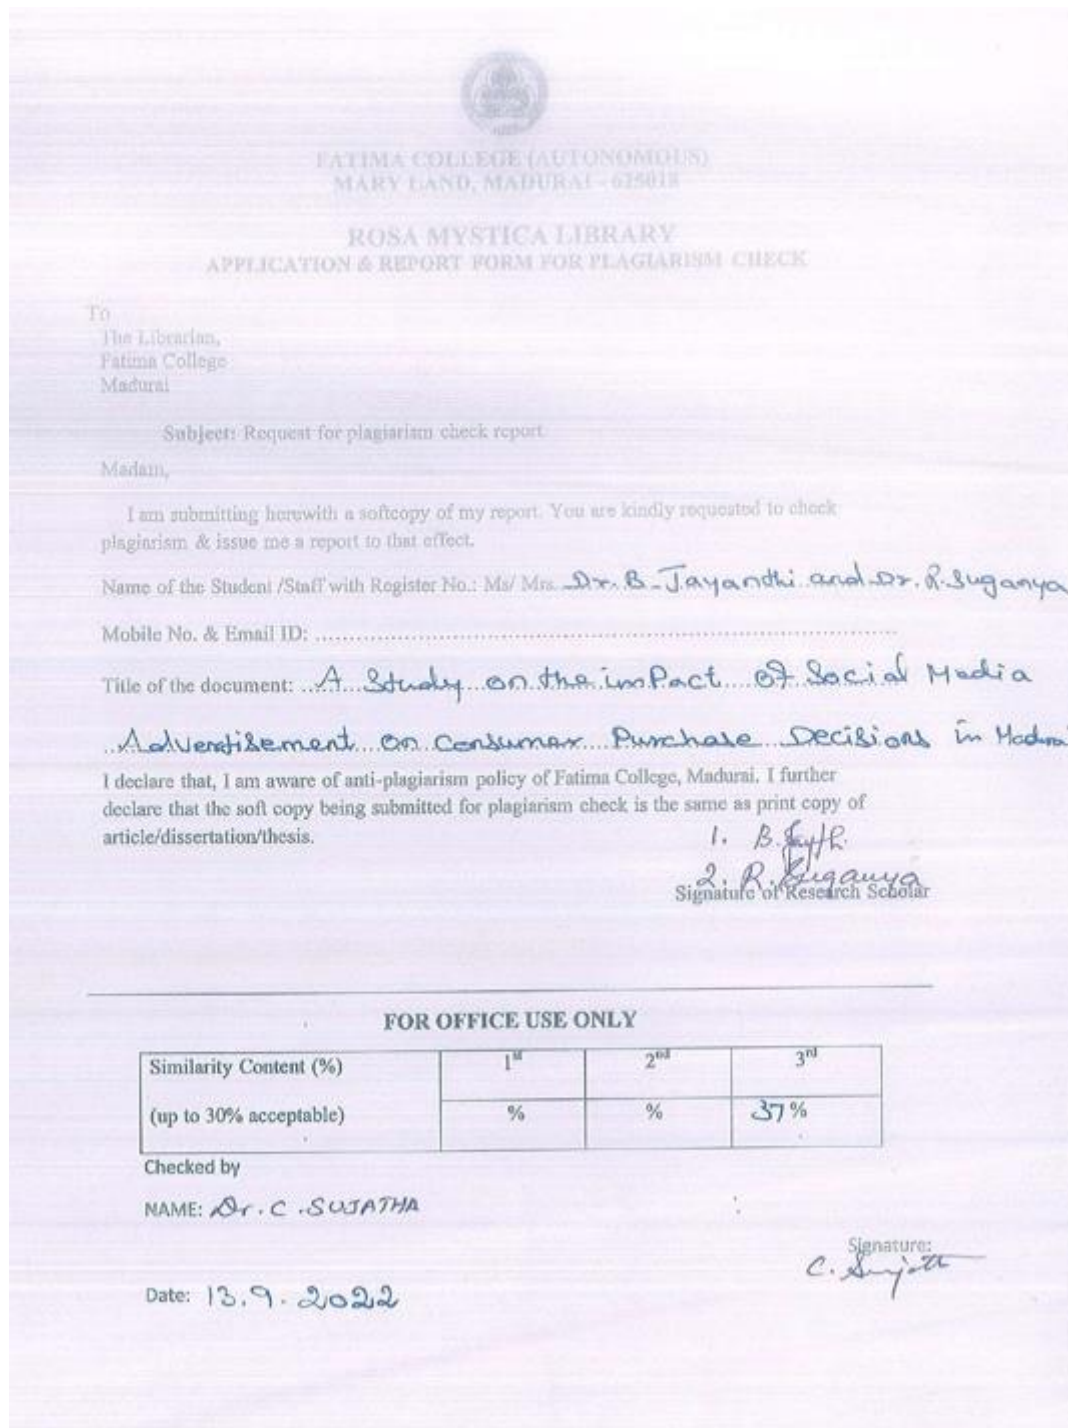 FATIMA COLLEGE (AUTONOMOUS)
MARY LAND, MADURAI - 625018
ROSA MYSTICA LIBRARY
APPLICATION & REPORT FORM FOR PLAGIARISM CHECK
To
The Librarian,
Fatima College
Madurai
Subject: Request for plagiarism check report.
Madam,
I am submitting herewith a softcopy of my report. You are kindly requested to check
plagiarism & issue me a report to that effect.
Name of the Student /Staff with Register No.: Ms/ Mrs. Dr. B. Jayandhi and Dr. R. Suganya
Mobile No. & Email ID: ........................................................................
Title of the document: ..A...Study...on the imPact...of Social Media
..Advertisement...on Consumer...Purchase...Decisions in
I declare that, I am aware of anti-plagiarism policy of Fatima College, Madurai. I further
declare that the soft copy being submitted for plagiarism check is the same as print copy of
article/dissertation/thesis.
1. B.
2. R. Suganya
Signature of Research Scholar
FOR OFFICE USE ONLY
Similarity Content (%) 1st 2nd 3rd
(up to 30% acceptable) % % 37%
Checked by
NAME: Dr. C. SUJATHA
Signature:
C.
Date: 13.9.2022